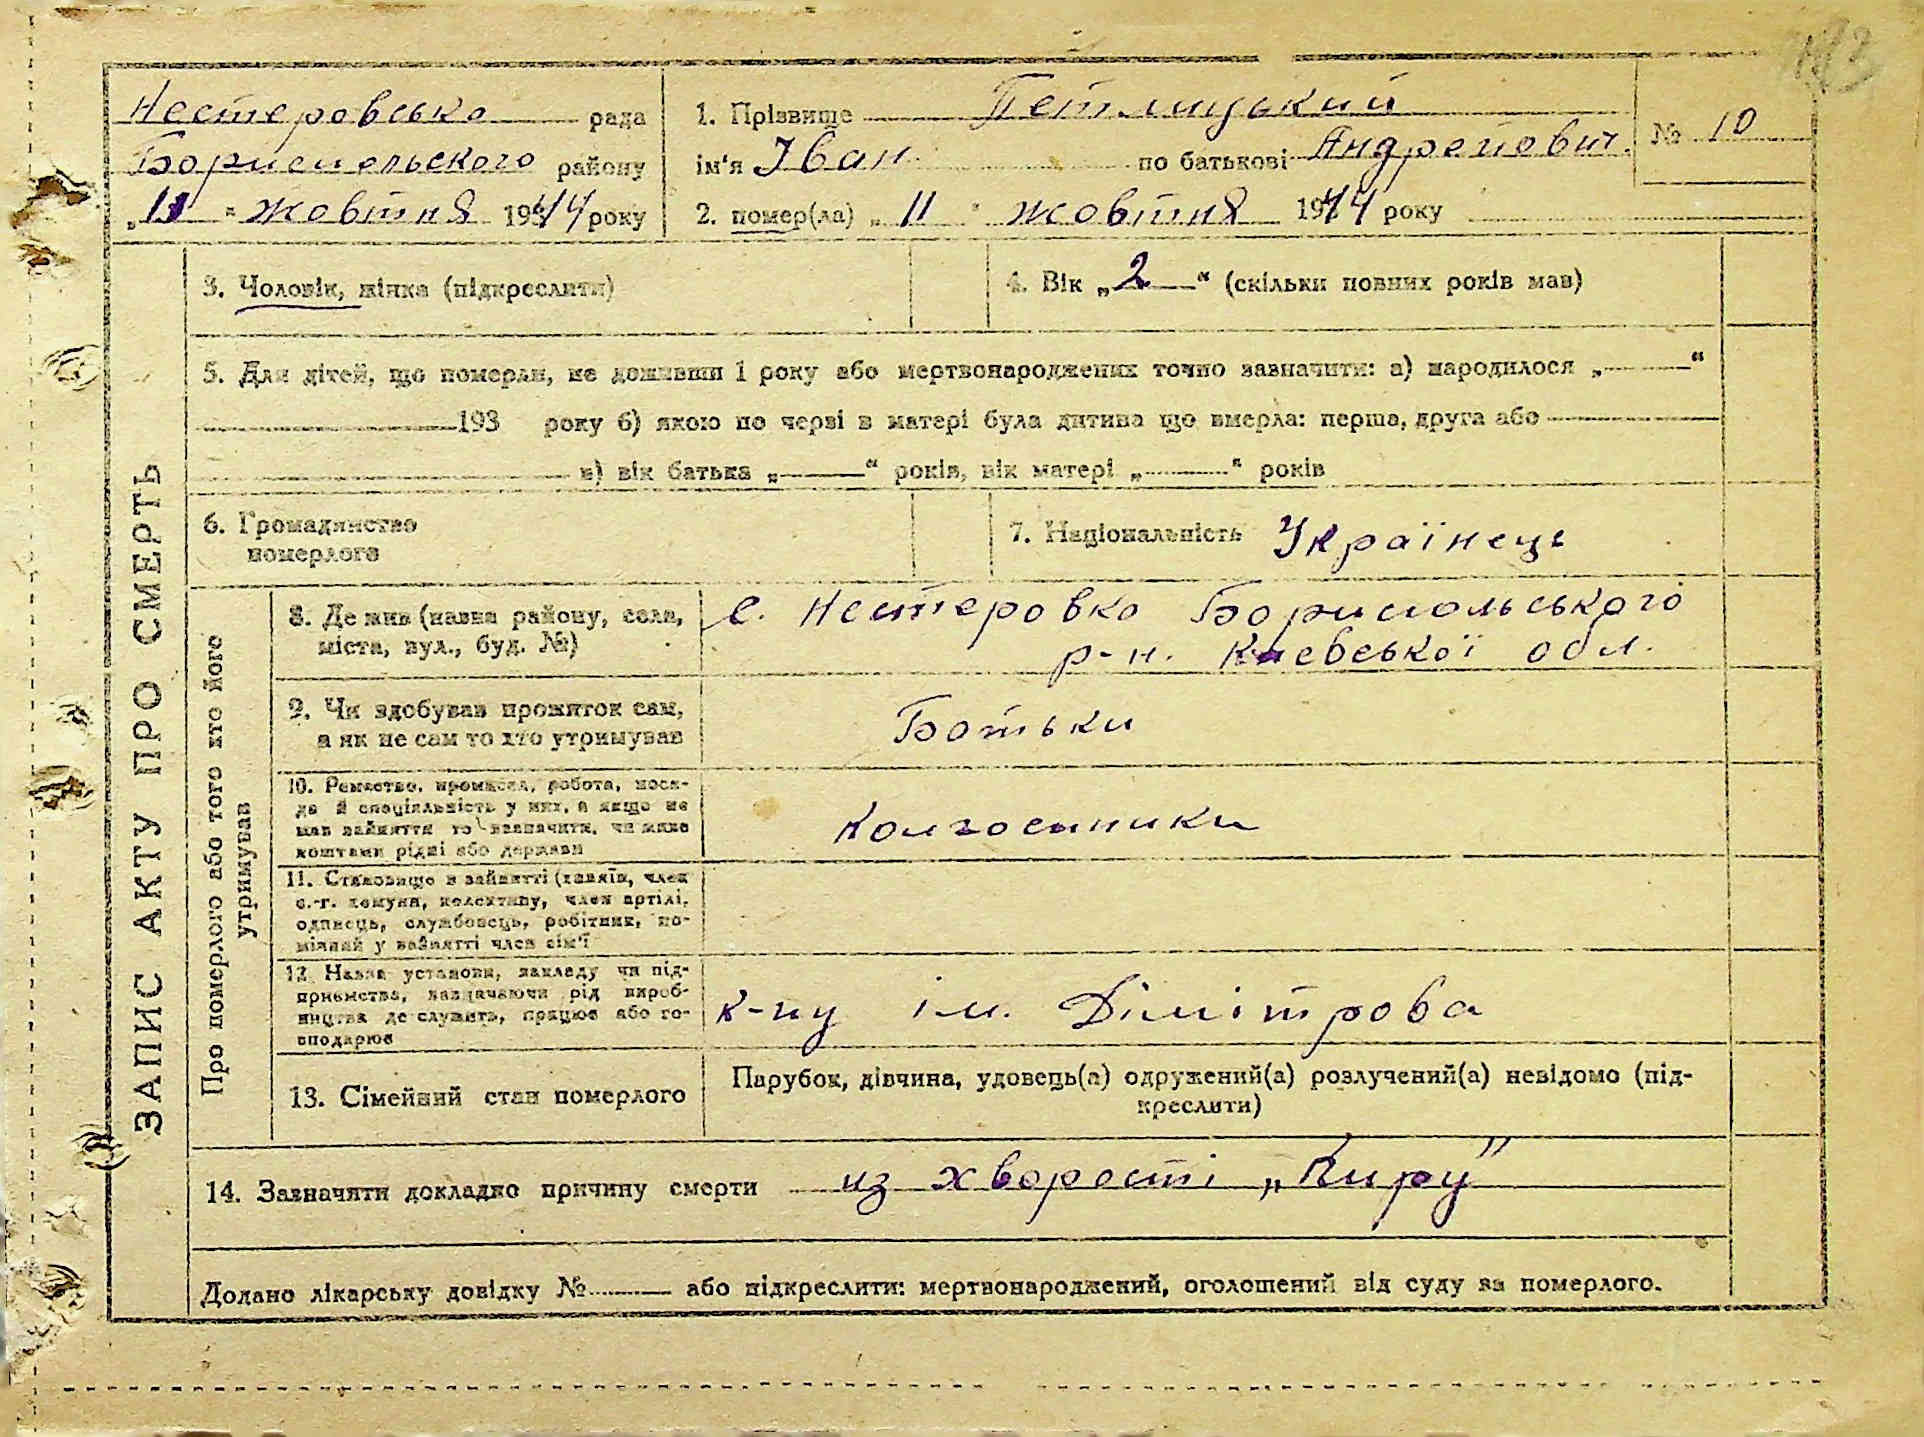 113
Нестеровсько рада
Бориспольского району
„11“ жовтня 1944 року
1. Прізвище Петлицький
ім'я Іван по батькові Андрейович.
№ 10
2. помер(ла) „11“ жовтня 1944 року
3. Чоловік, жінка (підкреслити)
4. Вік „2“ (скільки повних років мав)
5. Для дітей, що померли, не доживши 1 року або мертвонароджених точно зазначити: а) народилося „ “
193 року б) якою по черзі в матері була дитина що вмерла: перша, друга або
в) вік батька „ “ років, вік матері „ “ років
6. Громадянство
померлого
7. Національність Українець
ЗАПИС АКТУ ПРО СМЕРТЬ
Про померлого або того хто його
утримував
8. Де жив (назва району, села,
міста, вул., буд. №)
с. Нестеровко Бориспольського
р-н. Киевської обл.
9. Чи здобував прожиток сам,
а як не сам то хто утримував
Батьки
10. Ремество, промисел, робота, поса-
да й спеціяльність у них, а якщо не
мав зайняття то зазначити, чи живе
коштами рідні або держави
Колгоспники
11. Становище в зайнятті (хазяїн, член
с.-г. комуни, колективу, член артілі,
одинець, службовець, робітник, по-
мічний у зайнятті член сім'ї
12. Назва установи, закладу чи під-
приємства, зазначаючи рід вироб-
ництва де служить, працює або го-
сподарює
к-пу ім. Дімітрова
13. Сімейний стан померлого
Парубок, дівчина, удовець(а) одружений(а) розлучений(а) невідомо (під-
креслити)
14. Зазначити докладно причину смерти из хворости „Киру“
Додано лікарську довідку № або підкреслити: мертвонароджений, оголошений від суду за померлого.